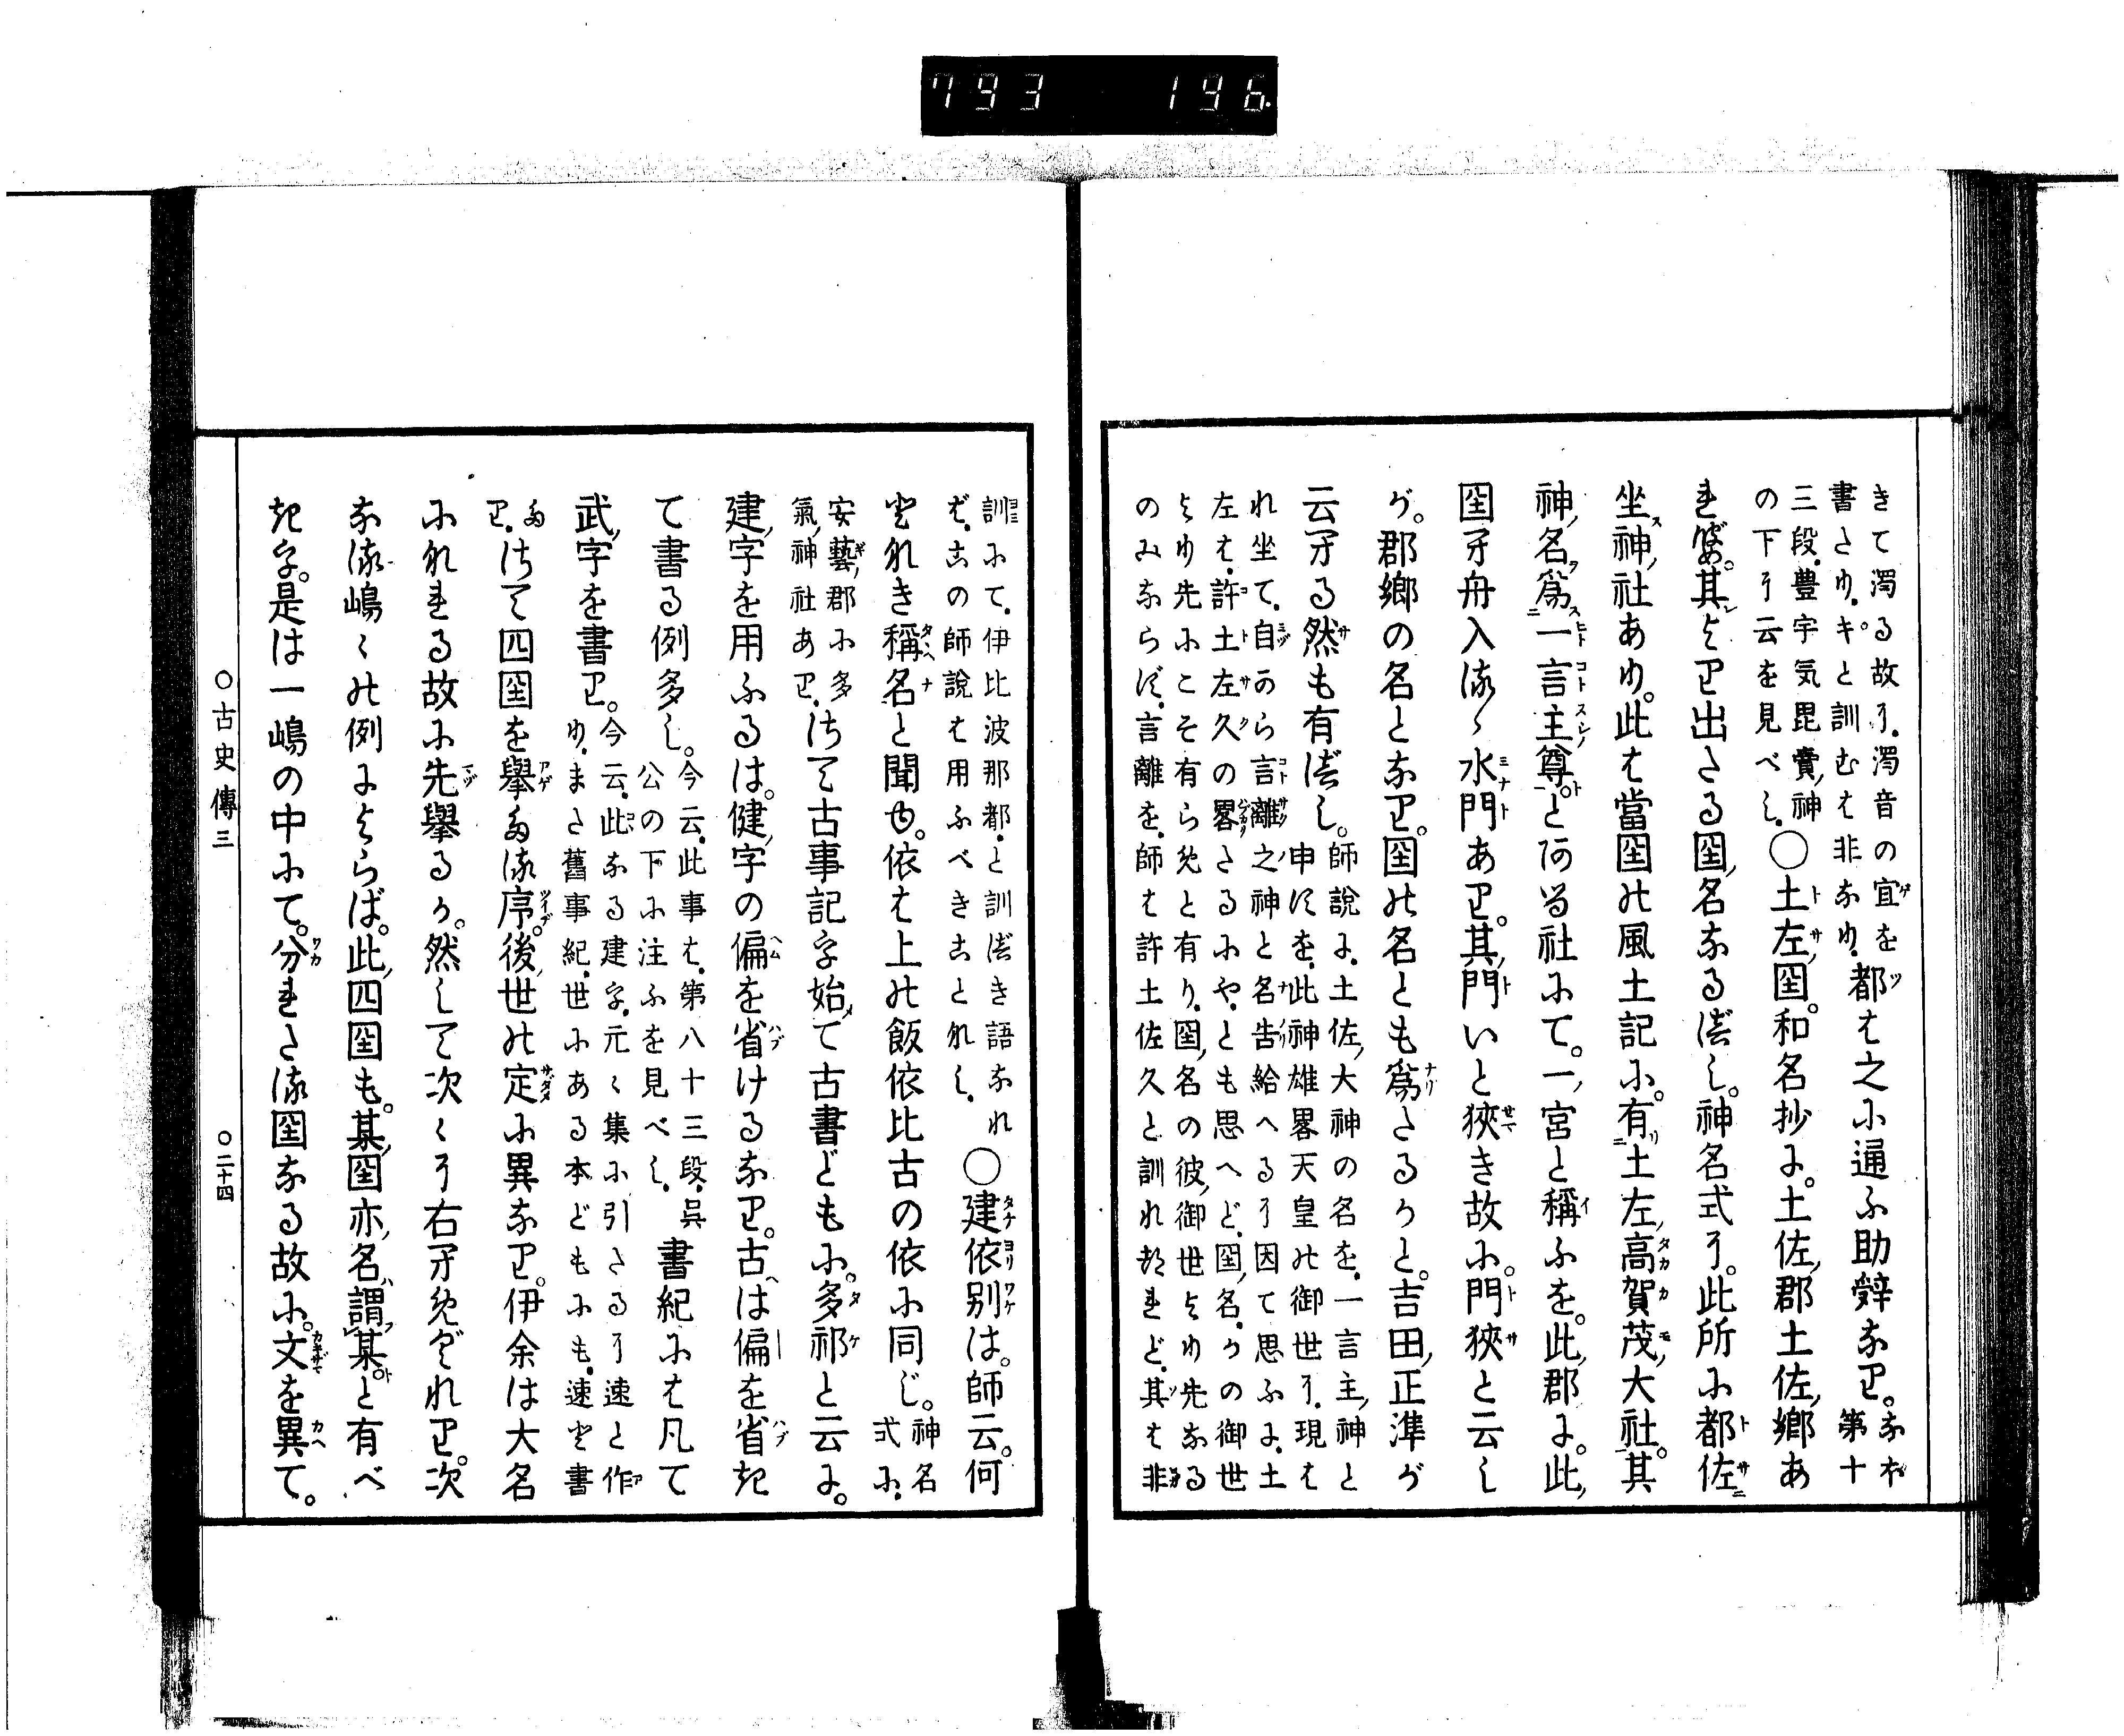 793 196
きて濁る故に.濁音の宜を
書たり.キと訓むは非なり.
都は之に通ふ助辭なり。
なほ
第十
三段.豊宇気毘賣神
の下に云を見べし.
○土左國。和名抄に。土佐郡土佐郷あ
れば。其より出たる國名なるべし。神名式に。此所に都佐
坐神社あり。此は當國の風土記に。有土左高賀茂大社。其
神名爲一言主尊。とある社にて。一宮と稱ふを。此郡に。此
國に舟入る水門あり。其門いと狹き故に。門狹と云し
が。郡郷の名となり。國の名とも爲たるかと。吉田正準が
云へる然も有べし。
師説に.土佐大神の名を.一言主神と
申すを.此神雄畧天皇の御世に.現は
れ坐て.自から言離之神と名告給へるに因て思ふに.土
左は.許土左久の畧たるにや.とも思へど.國名.かの御世
より先にこそ有らめと有り.國名の彼御世より先なる
のみならず.言離を.師は許土佐久と訓れつれど.其は非
訓にて.伊比波那都.と訓べき語なれ
ば.この師説は用ふべきことなし.
○建依別は。師云。何
となき稱名と聞ゆ。依は上の飯依比古の依に同じ。
神名
式に.
安藝郡に多
氣神社あり.
さて古事記を始て古書どもに。多祁と云に。
建字を用ふるは。健字の偏を省けるなり。古は偏を省き
て書る例多し。
今云.此事は.第八十三段.呉
公の下に注ふを見べし.
書紀には凡て
武字を書り。
今云.此なる建字.元々集に引たるに速と作
り.また舊事紀.世にある本どもにも.速と書
たり.
さて四國を擧たる序。後世の定に異なり。伊余は大名
になれる故に先擧るか。然して次々に右にめぐれり。次
なる嶋々の例によらば。此四國も。某國亦名謂某。と有べ
きを。是は一嶋の中にて。分れたる國なる故に。文を異て。
○古史傳三
○二十四